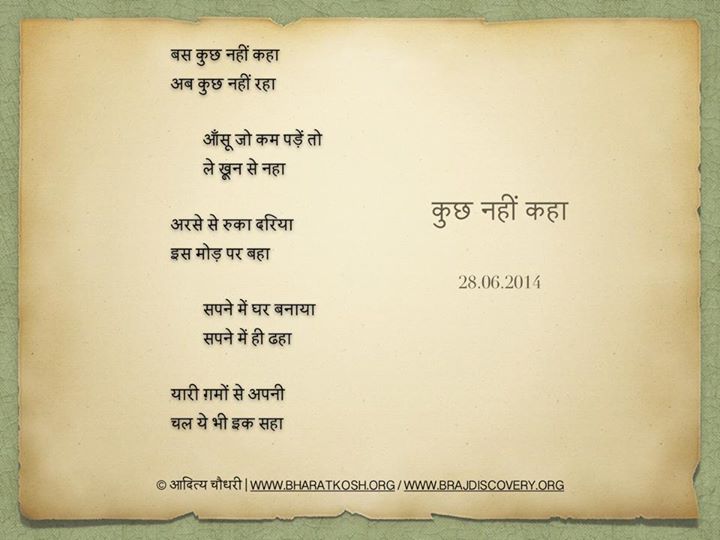 बस कुछ नहीं कहा
अब कुछ नहीं रहा
आँसू जो कम पड़ें तो
ले ख़ून से नहा
अरसे से रुका दरिया
इस मोड़ पर बहा
सपने में घर बनाया
सपने में ही ढहा
यारी ग़मों से अपनी
चल ये भी इक सहा
कुछ नहीं कहा
28.06.2014
© आदित्य चौधरी | WWW.BHARATKOSH.ORG / WWW.BRAJDISCOVERY.ORG